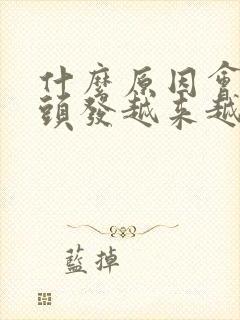 什麼原因會
頭發越来越
藍掉